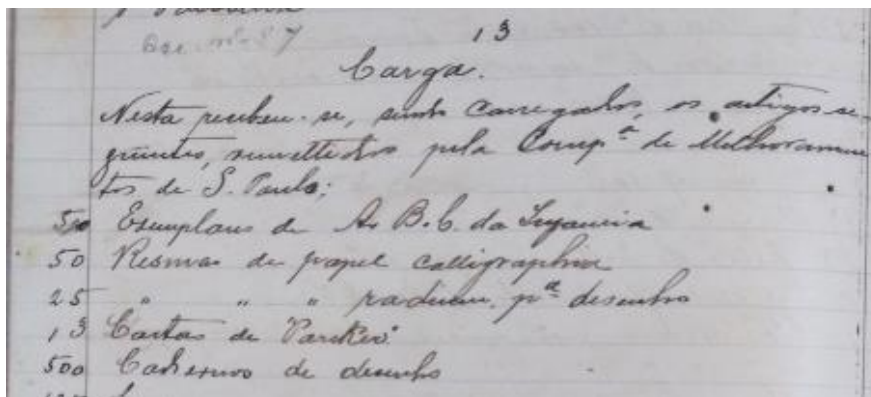 13
Carga.
Nesta recebeu-se, sendo carregados, os artigos se-
guintes, remettidos pela Comp.ª de Melhoramen
tos de S. Paulo:
500 Exemplares de A. B. C. da Infancia
50 Resmas de papel calligraphia
25 " " " radium. pª desenho
13 Cartas de "Parker"
500 Cadernos de desenho